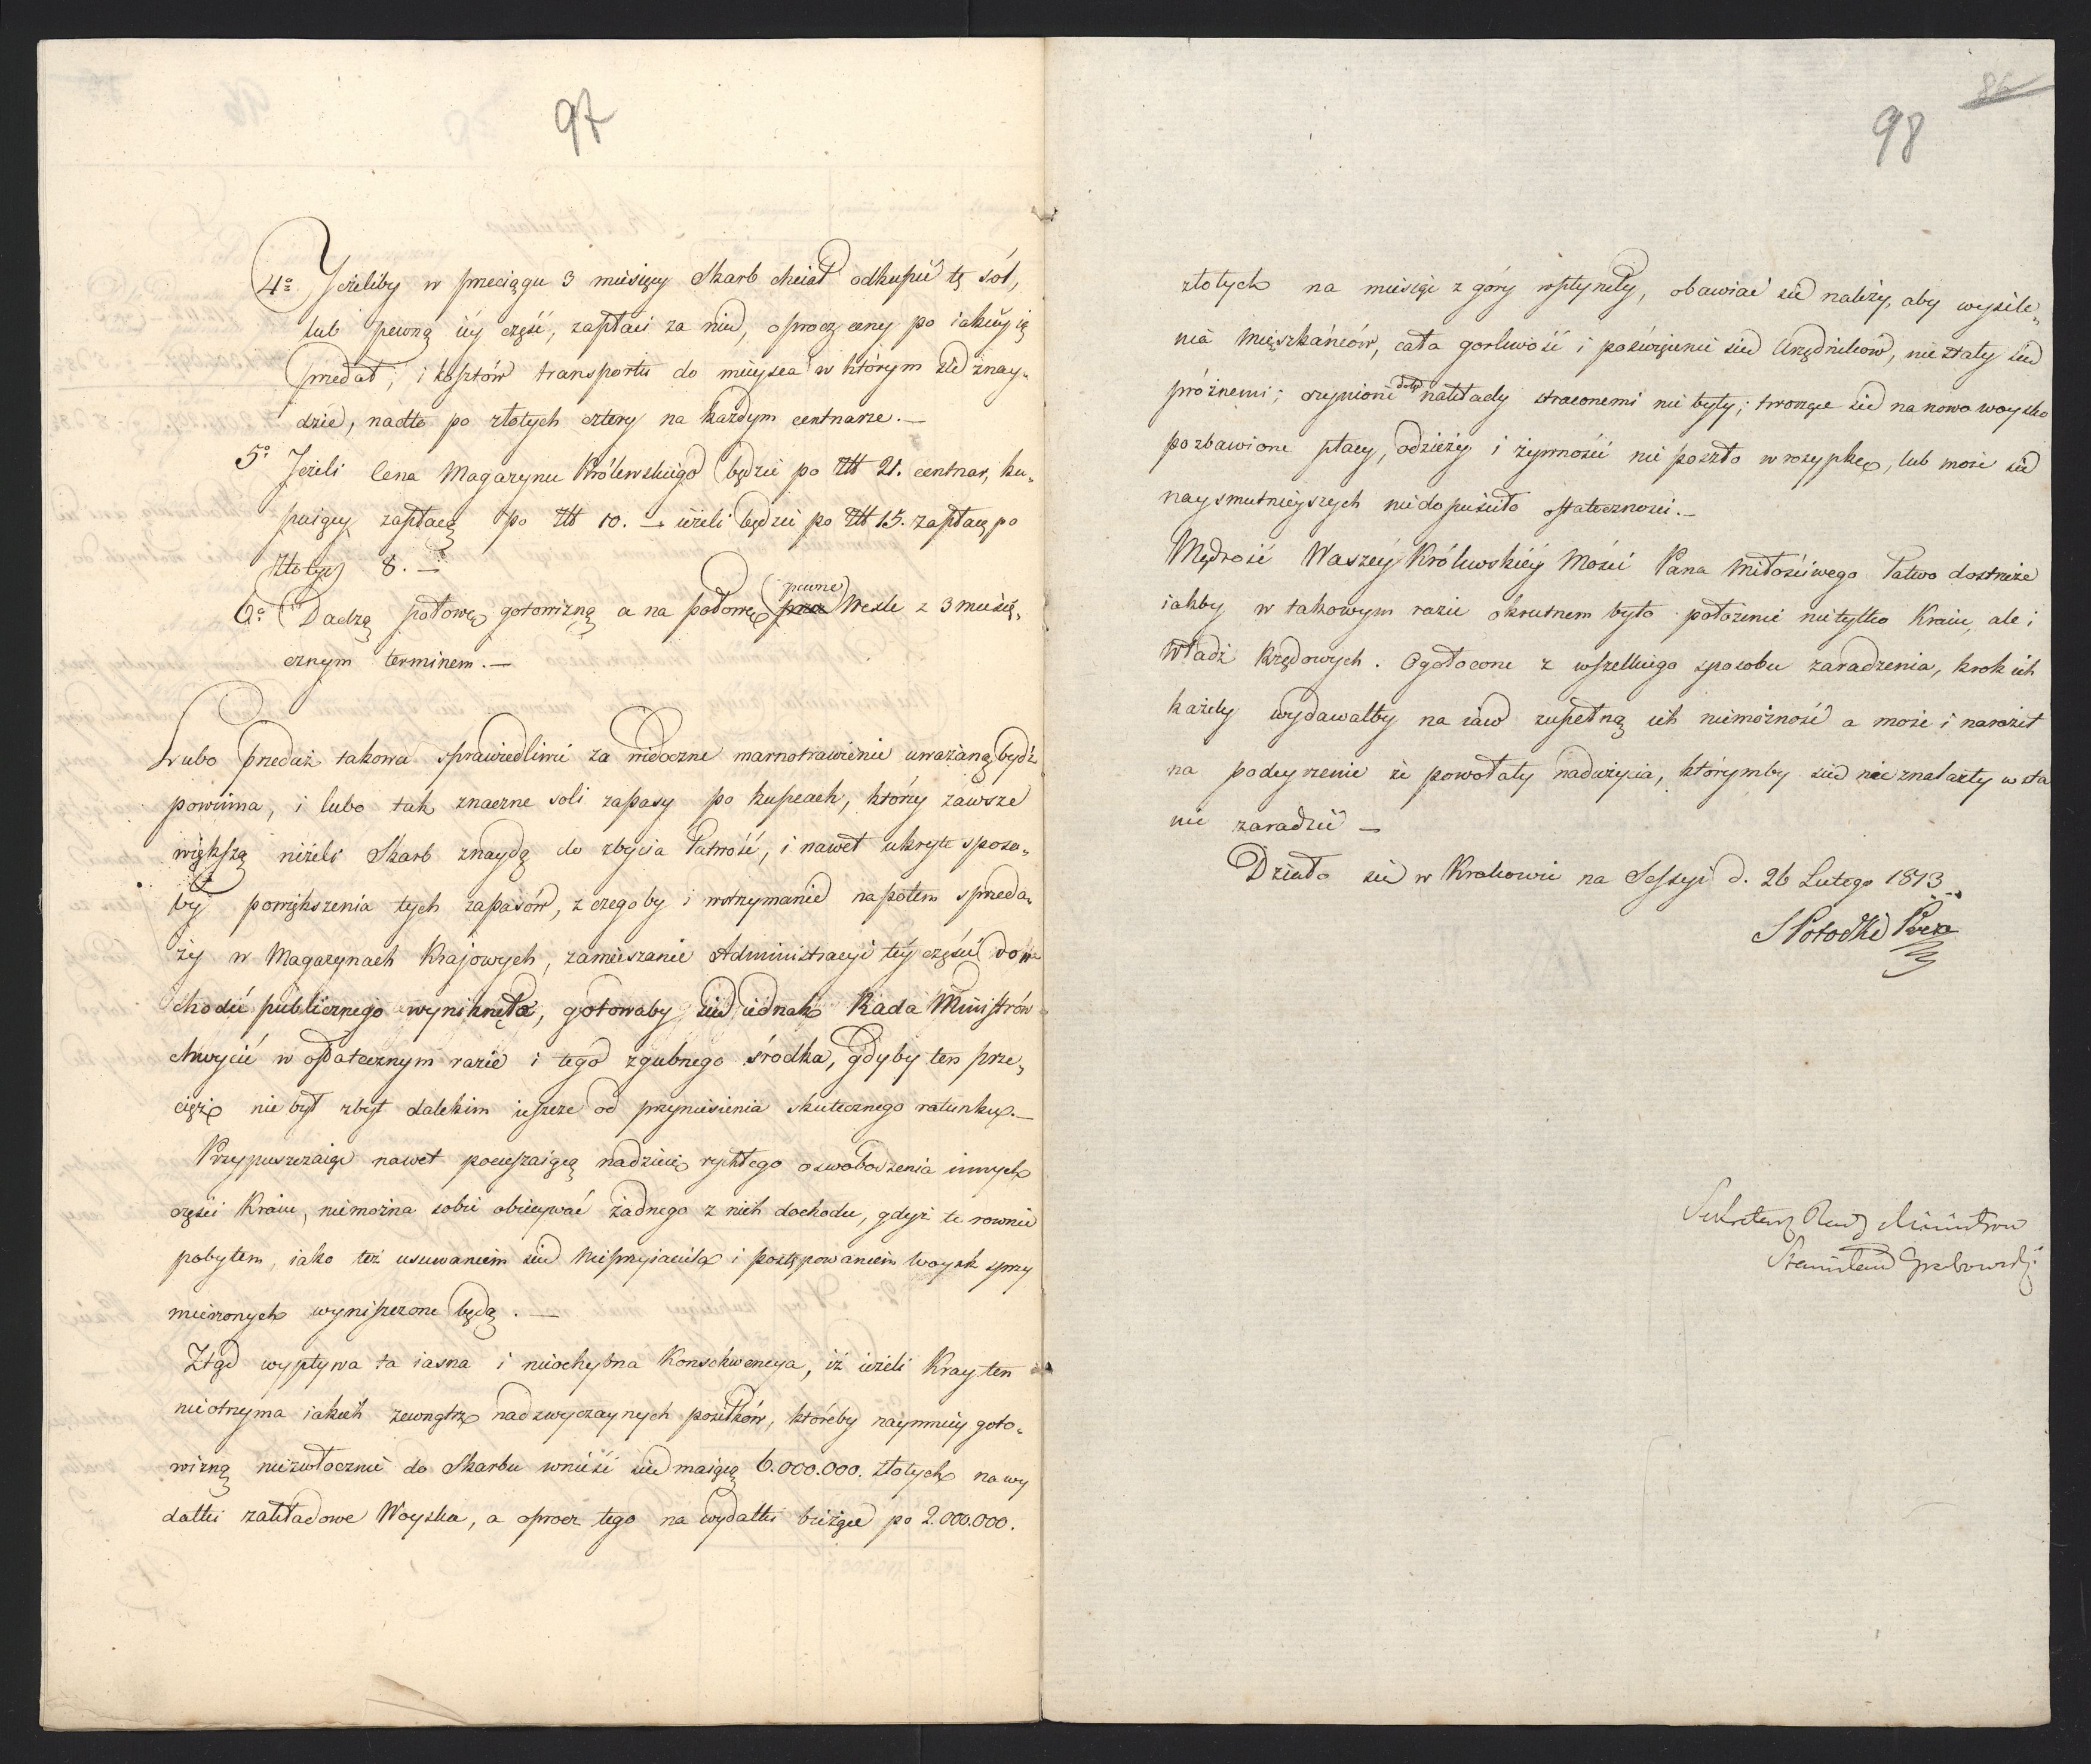 97
4o Jeżeliby w przeciągu 3 miesięcy Skarb chciał odkupić tę sól,
lub pewną iéy część, zapłaci za nię, oprocz ceny po iakiéy ią
przedał, i kosztów transportu do mieysca w którym się znay„
dzie, nadto po złotych cztery na każdym centnarze.—
5o Jeżeli Cena Magazynu Królewskiego będzie po Złł 21. centnar, ku„
puiący zapłacą po Złł 10. — ieżeli będzie po Złł 15. zapłacą po
Złotych 8.—
6o Dadzą połowę gotowizną a na połowę pewne Wexle z 3 miesię„
cznym terminem.—
Lubo przedaż takowa sprawiedliwie za widoczne marnotrawienie uważaną bydź
powinna, i lubo tak znaczne soli zapasy po kupcach, którzy zawsze
większą niżeli Skarb znaydą do zbycia łatwość, i nawet ukryte sposo„
by powiększenia tych zapasów, z czegoby i wstrzymanie napotem sprzeda„
ży w Magazynach Krajowych, zamieszanie Administracyi téy części do„
chodu publicznego wyniknęło, gotowaby się iednak Rada Ministrów
chwycić w ostatecznym razie i tego zgubnego środka, gdyby ten prze„
cięż nie był zbyt dalekim ieszcze od przyniesienia skutecznego ratunku.—
Przypuszczaiąc nawet pocieszaiącą nadzieię rychłego oswobodzenia innych
części Kraiu, niemożna sobie obiecywać żadnego z nich dochodu, gdyż te rownie
pobytem, iako też usuwaniem się Nieprzyiaciela i postępowaniem Woysk sprzy
mierzonych wyniszczone będą.—
Ztąd wypływa ta iasna i nieochybna Konsekwencya, iż ieżeli Kray ten
nieotrzyma iakich zewnątrz nadzwyczaynych posiłków, któreby naymniéy goto„
wizną niezwłocznie do Skarbu wnieść się maiącą 6.000.000. złotych na wy
datki zakładowe Woyska, a oprocz tego na wydatki bieżące po 2.000.000.
86
98
złotych na miesiąc z góry wpłynęły, obawiać się należy, aby wysile„
nia mieszkańców, cała gorliwość i poświęcenie się Urzędników, niestały się
próżnemi; czynione dotąd nakłady straconemi nie były; tworzące się na nowo woysko
pozbawione płacy, odzieży i żywności nie poszło w rozypkę, lub może się
naysmutnieyszych niedopuściło ostateczności.—
Mądrość Waszéy Królewskiéy Mości Pana Miłościwego łatwo dostrzeże
iakby w takowym razie okrutnem było położenie nietylko Kraiu, ale i
Władz Rządowych. Ogołocone z wszelkiego sposobu zaradzenia, krok ich
każdy wydawałby na iaw zupełną ich niemożność a może i naraził
na podeyrzenie że powołały nadużycia, którymby się nie znalazły w sta
nie zaradzić —
Działo się w Krakowie na Sessyi d. 26 Lutego 1813
S Potocki Prez
Sekretarz Rady Ministrow
Stanisław Grabowski